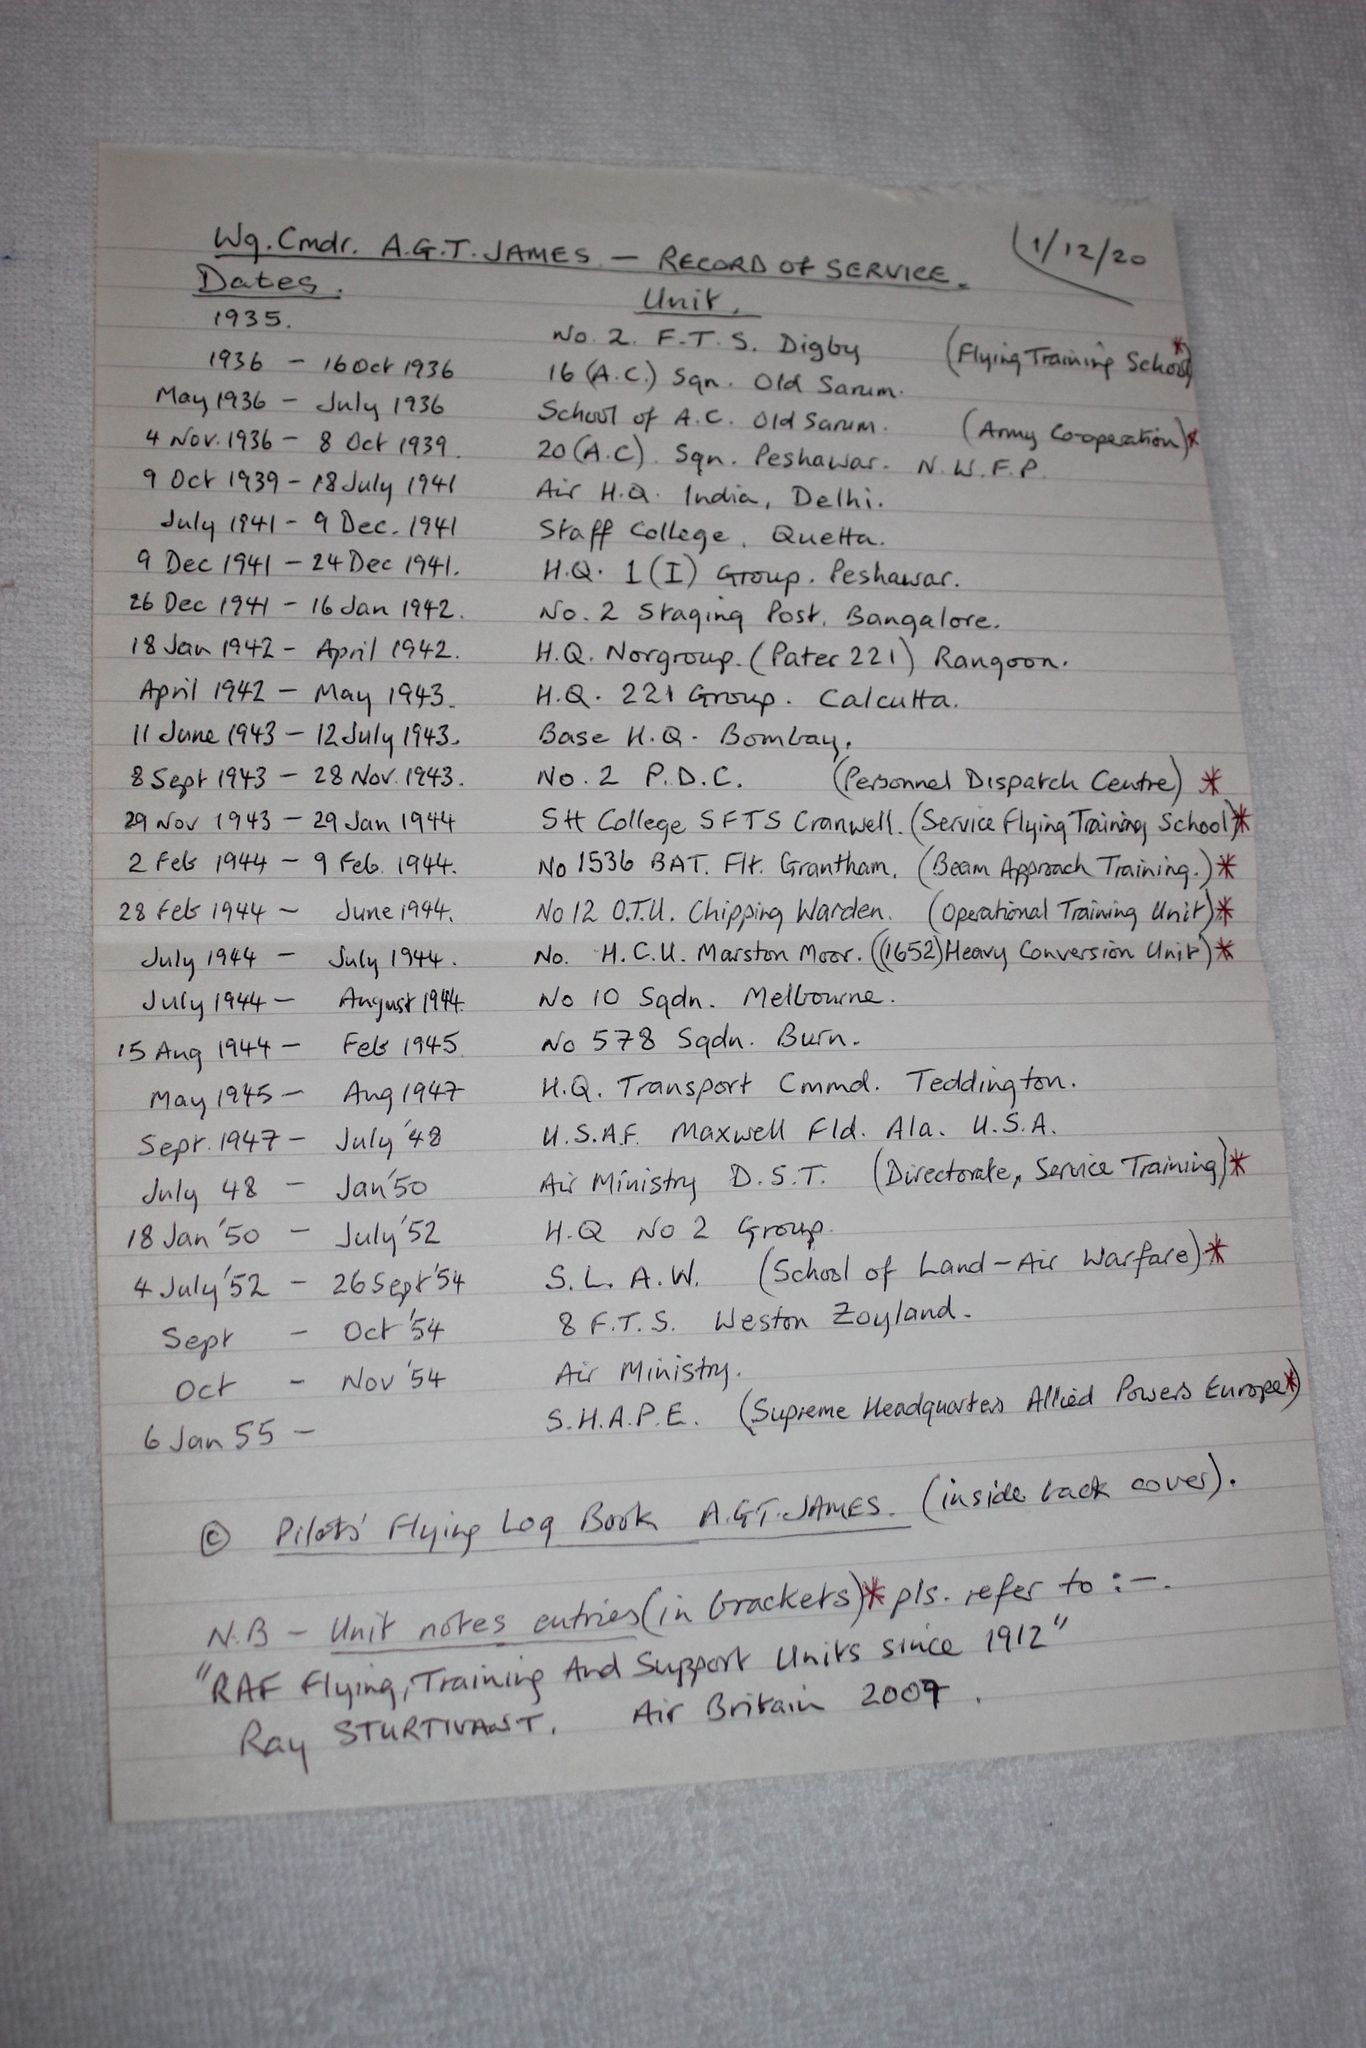 Wg. Cmdr. A.G.T. JAMES — RECORD OF SERVICE. 1/12/20
Dates. Unit.
1935. No. 2. F.T.S. Digby (Flying Training School)*
1936 - 16 Oct 1936 16 (A.C.) Sqn. Old Sarum.
May 1936 - July 1936 School of A.C. Old Sarum. (Army Co-operation)*
4 Nov. 1936 - 8 Oct 1939. 20 (A.C). Sqn. Peshawar. N.W.F.P.
9 Oct 1939 - 18 July 1941 Air H.Q. India, Delhi.
July 1941 - 9 Dec. 1941 Staff College, Quetta.
9 Dec 1941 - 24 Dec 1941. H.Q. 1 (I) Group. Peshawar.
26 Dec 1941 - 16 Jan 1942. No. 2 Staging Post. Bangalore.
18 Jan 1942 - April 1942. H.Q. Norgroup. (Pater 221) Rangoon.
April 1942 - May 1943. H.Q. 221 Group. Calcutta.
11 June 1943 - 12 July 1943. Base H.Q. Bombay.
8 Sept 1943 - 28 Nov. 1943. No. 2 P.D.C. (Personnel Dispatch Centre) *
29 Nov 1943 - 29 Jan 1944 SH College SFTS Cranwell. (Service Flying Training School)*
2 Feb 1944 - 9 Feb. 1944. No 1536 BAT. Flt. Grantham. (Beam Approach Training.)*
28 Feb 1944 - June 1944. No 12 O.T.U. Chipping Warden. (Operational Training Unit)*
July 1944 - July 1944. No. H.C.U. Marston Moor. ((1652) Heavy Conversion Unit)*
July 1944 - August 1944. No 10 Sqdn. Melbourne.
15 Aug 1944 - Feb 1945. No 578 Sqdn. Burn.
May 1945 - Aug 1947 H.Q. Transport Cmmd. Teddington.
Sept. 1947 - July '48 U.S.A.F. Maxwell Fld. Ala. U.S.A.
July 48 - Jan '50 Air Ministry D.S.T. (Directorate, Service Training)*
18 Jan '50 - July '52 H.Q No 2 Group.
4 July '52 - 26 Sept '54 S.L.A.W. (School of Land-Air Warfare)*
Sept - Oct '54 8 F.T.S. Weston Zoyland.
Oct - Nov '54 Air Ministry.
6 Jan 55 - S.H.A.P.E. (Supreme Headquarters Allied Powers Europe*)
© Pilots' Flying Log Book A.G.T. JAMES. (inside back cover).
N.B - Unit notes entries (in brackets)* pls. refer to :-.
"RAF Flying, Training And Support Units since 1912"
Ray STURTIVANT. Air Britain 2007.